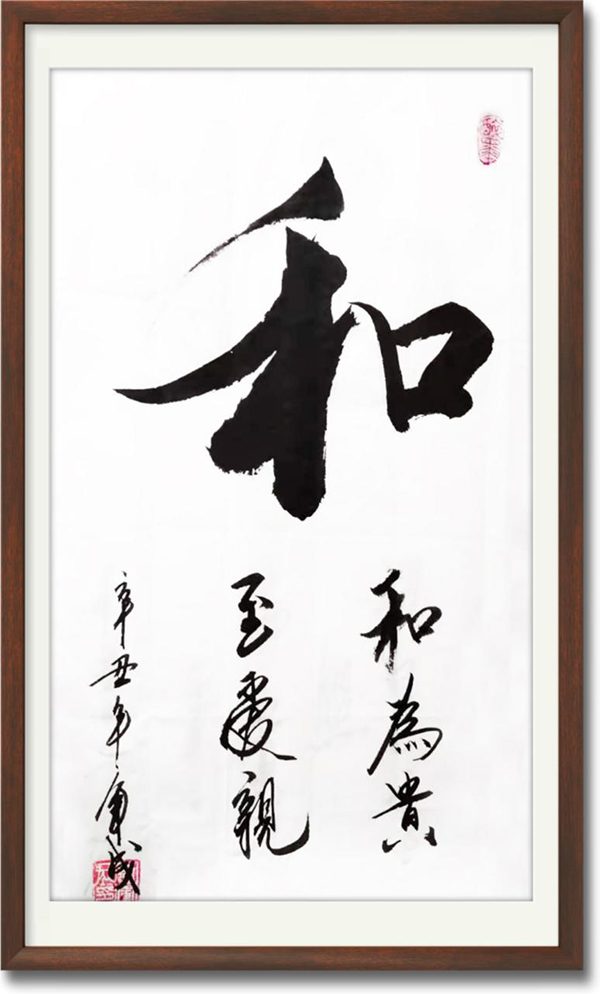 和
和為貴
至愛親
辛丑年